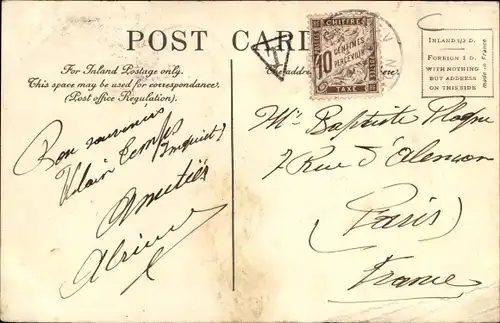 POST CARD
For Inland Postage only.
This space may be used for correspondence.
(Post office Regulation).
The address here.
T
CHIFFRES
10
CENTIMES
A PERCEVOIR
TAXE
INLAND 1/2 D.
FOREIGN 1 D.
WITH NOTHING
BUT ADDRESS
ON THIS SIDE
made in France
Bon souvenir
Vilain temps
Amitiés
Mr Baptiste
7 Rue d'Alençon
(Paris)
France